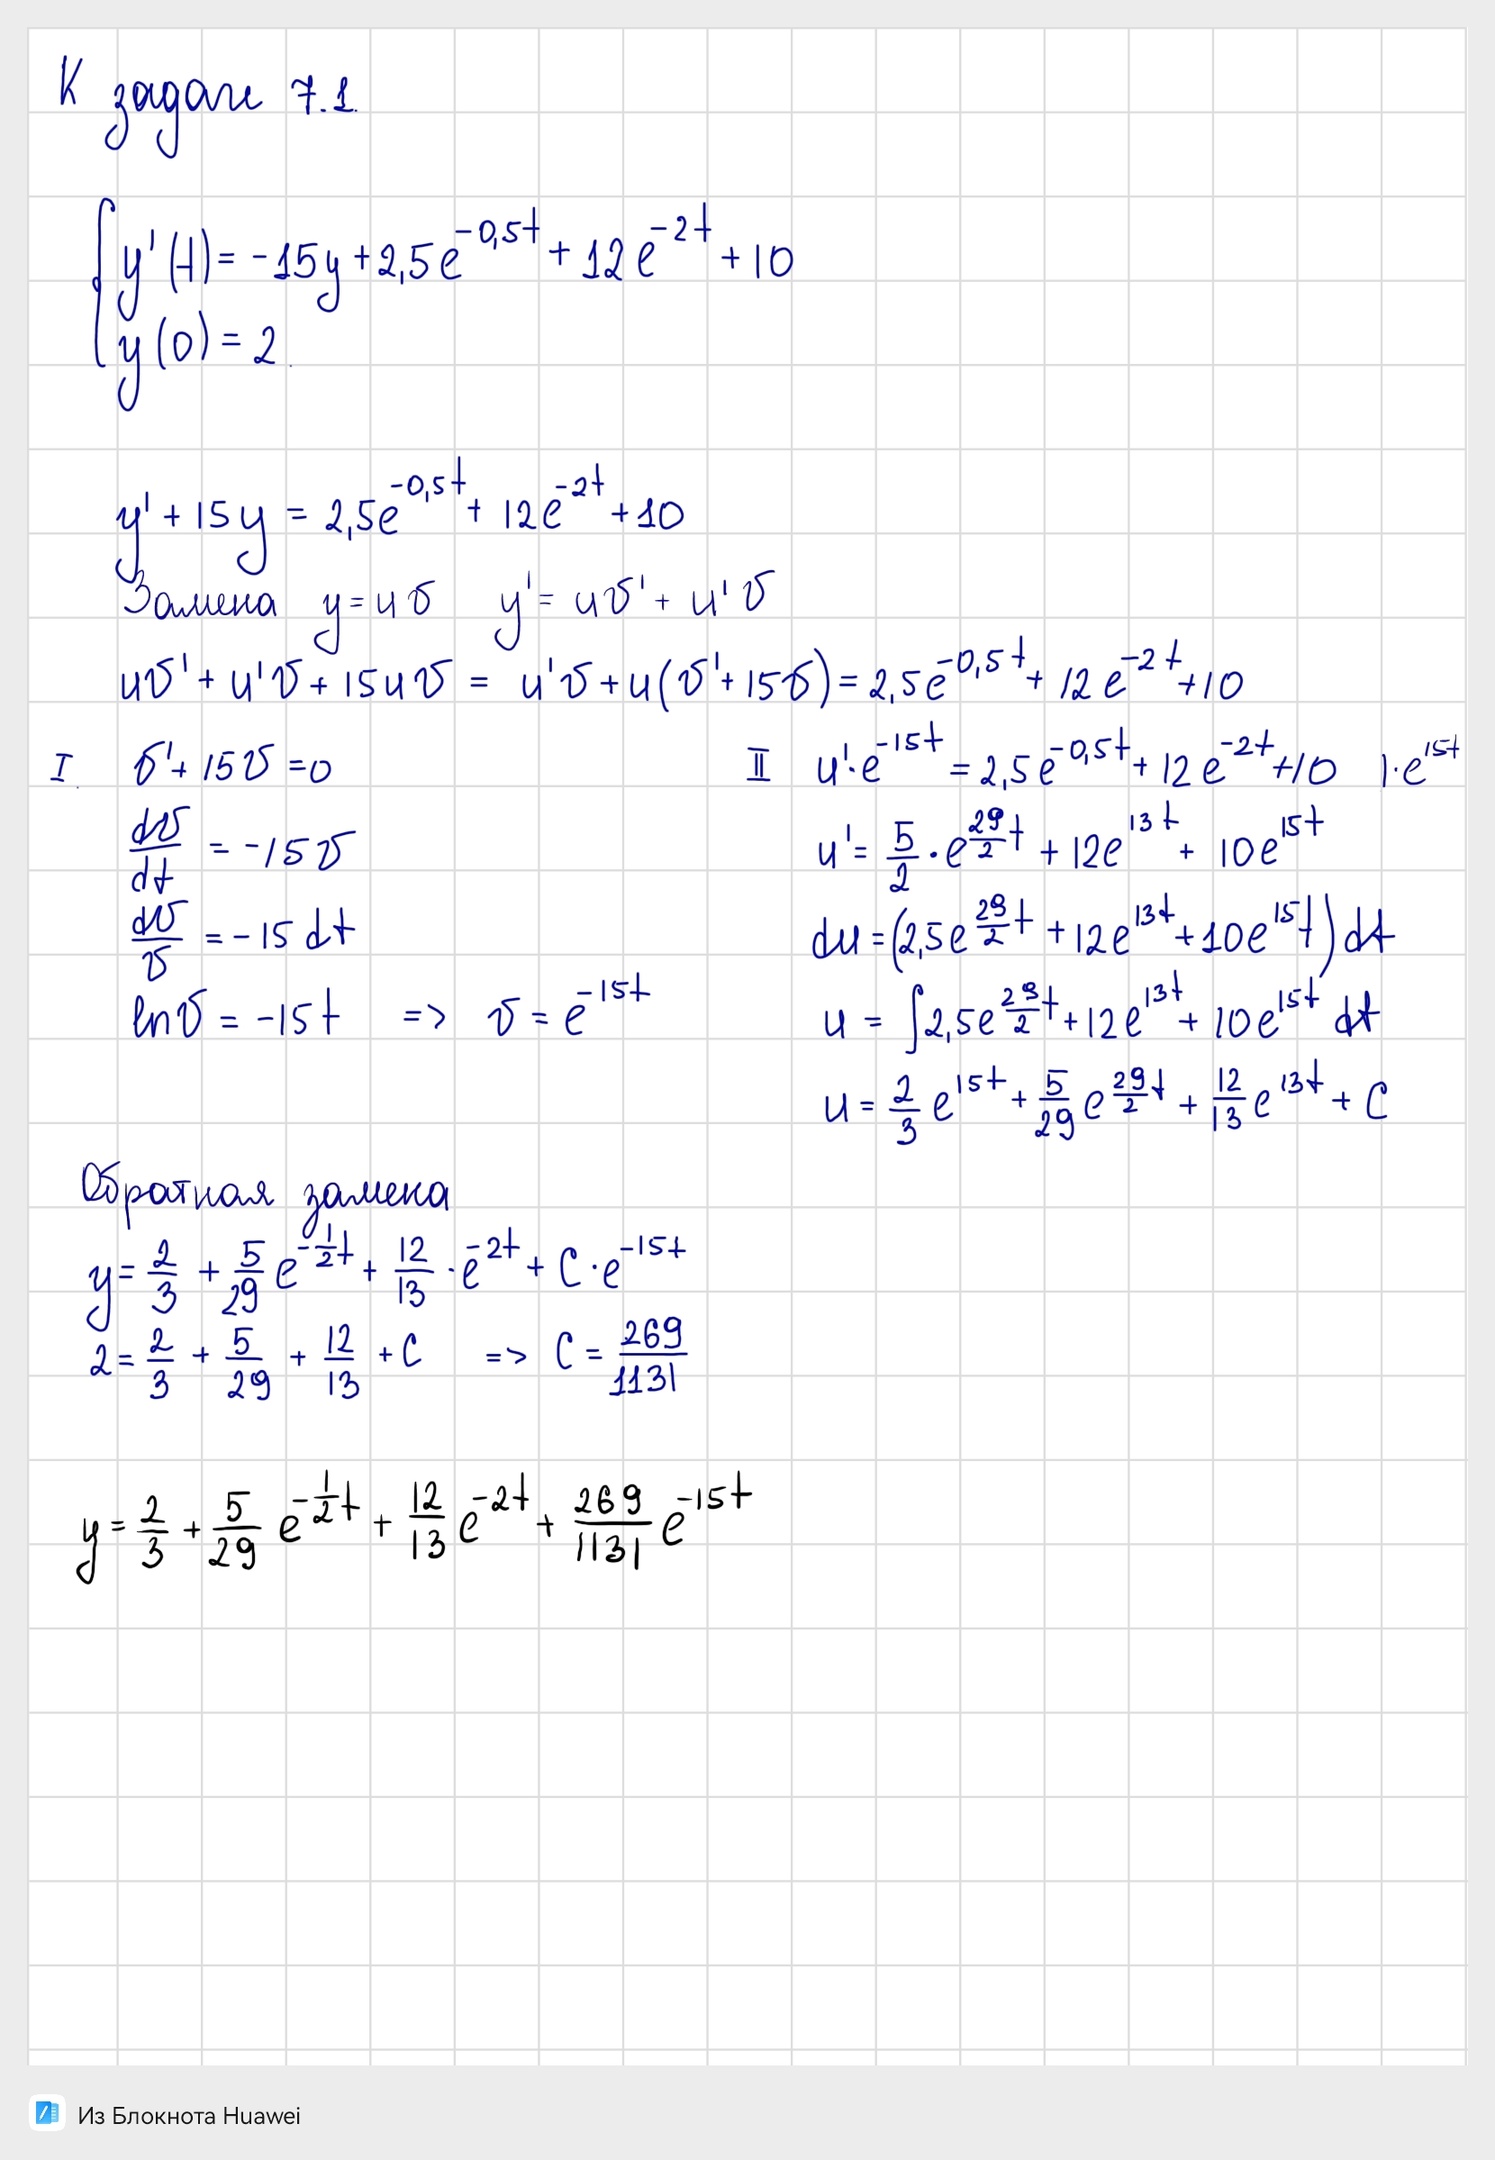 К задаче 7.1.
{ y'(t) = -15y + 2,5e^{-0,5t} + 12e^{-2t} + 10
y(0) = 2.
y' + 15y = 2,5e^{-0,5t} + 12e^{-2t} + 10
Замена y = uv y' = uv' + u'v
uv' + u'v + 15uv = u'v + u(v' + 15v) = 2,5e^{-0,5t} + 12e^{-2t} + 10
I. v' + 15v = 0
dv/dt = -15v
dv/v = -15 dt
ln v = -15t => v = e^{-15t}
II u'·e^{-15t} = 2,5e^{-0,5t} + 12e^{-2t} + 10 |·e^{15t}
u' = 5/2 · e^{29/2 t} + 12e^{13t} + 10e^{15t}
du = (2,5e^{29/2 t} + 12e^{13t} + 10e^{15t}) dt
u = ∫ 2,5e^{29/2 t} + 12e^{13t} + 10e^{15t} dt
u = 2/3 e^{15t} + 5/29 e^{29/2 t} + 12/13 e^{13t} + C
Обратная замена
y = 2/3 + 5/29 e^{-1/2 t} + 12/13 · e^{-2t} + C · e^{-15t}
2 = 2/3 + 5/29 + 12/13 + C => C = 269/1131
y = 2/3 + 5/29 e^{-1/2 t} + 12/13 e^{-2t} + 269/1131 e^{-15t}
Из Блокнота Huawei